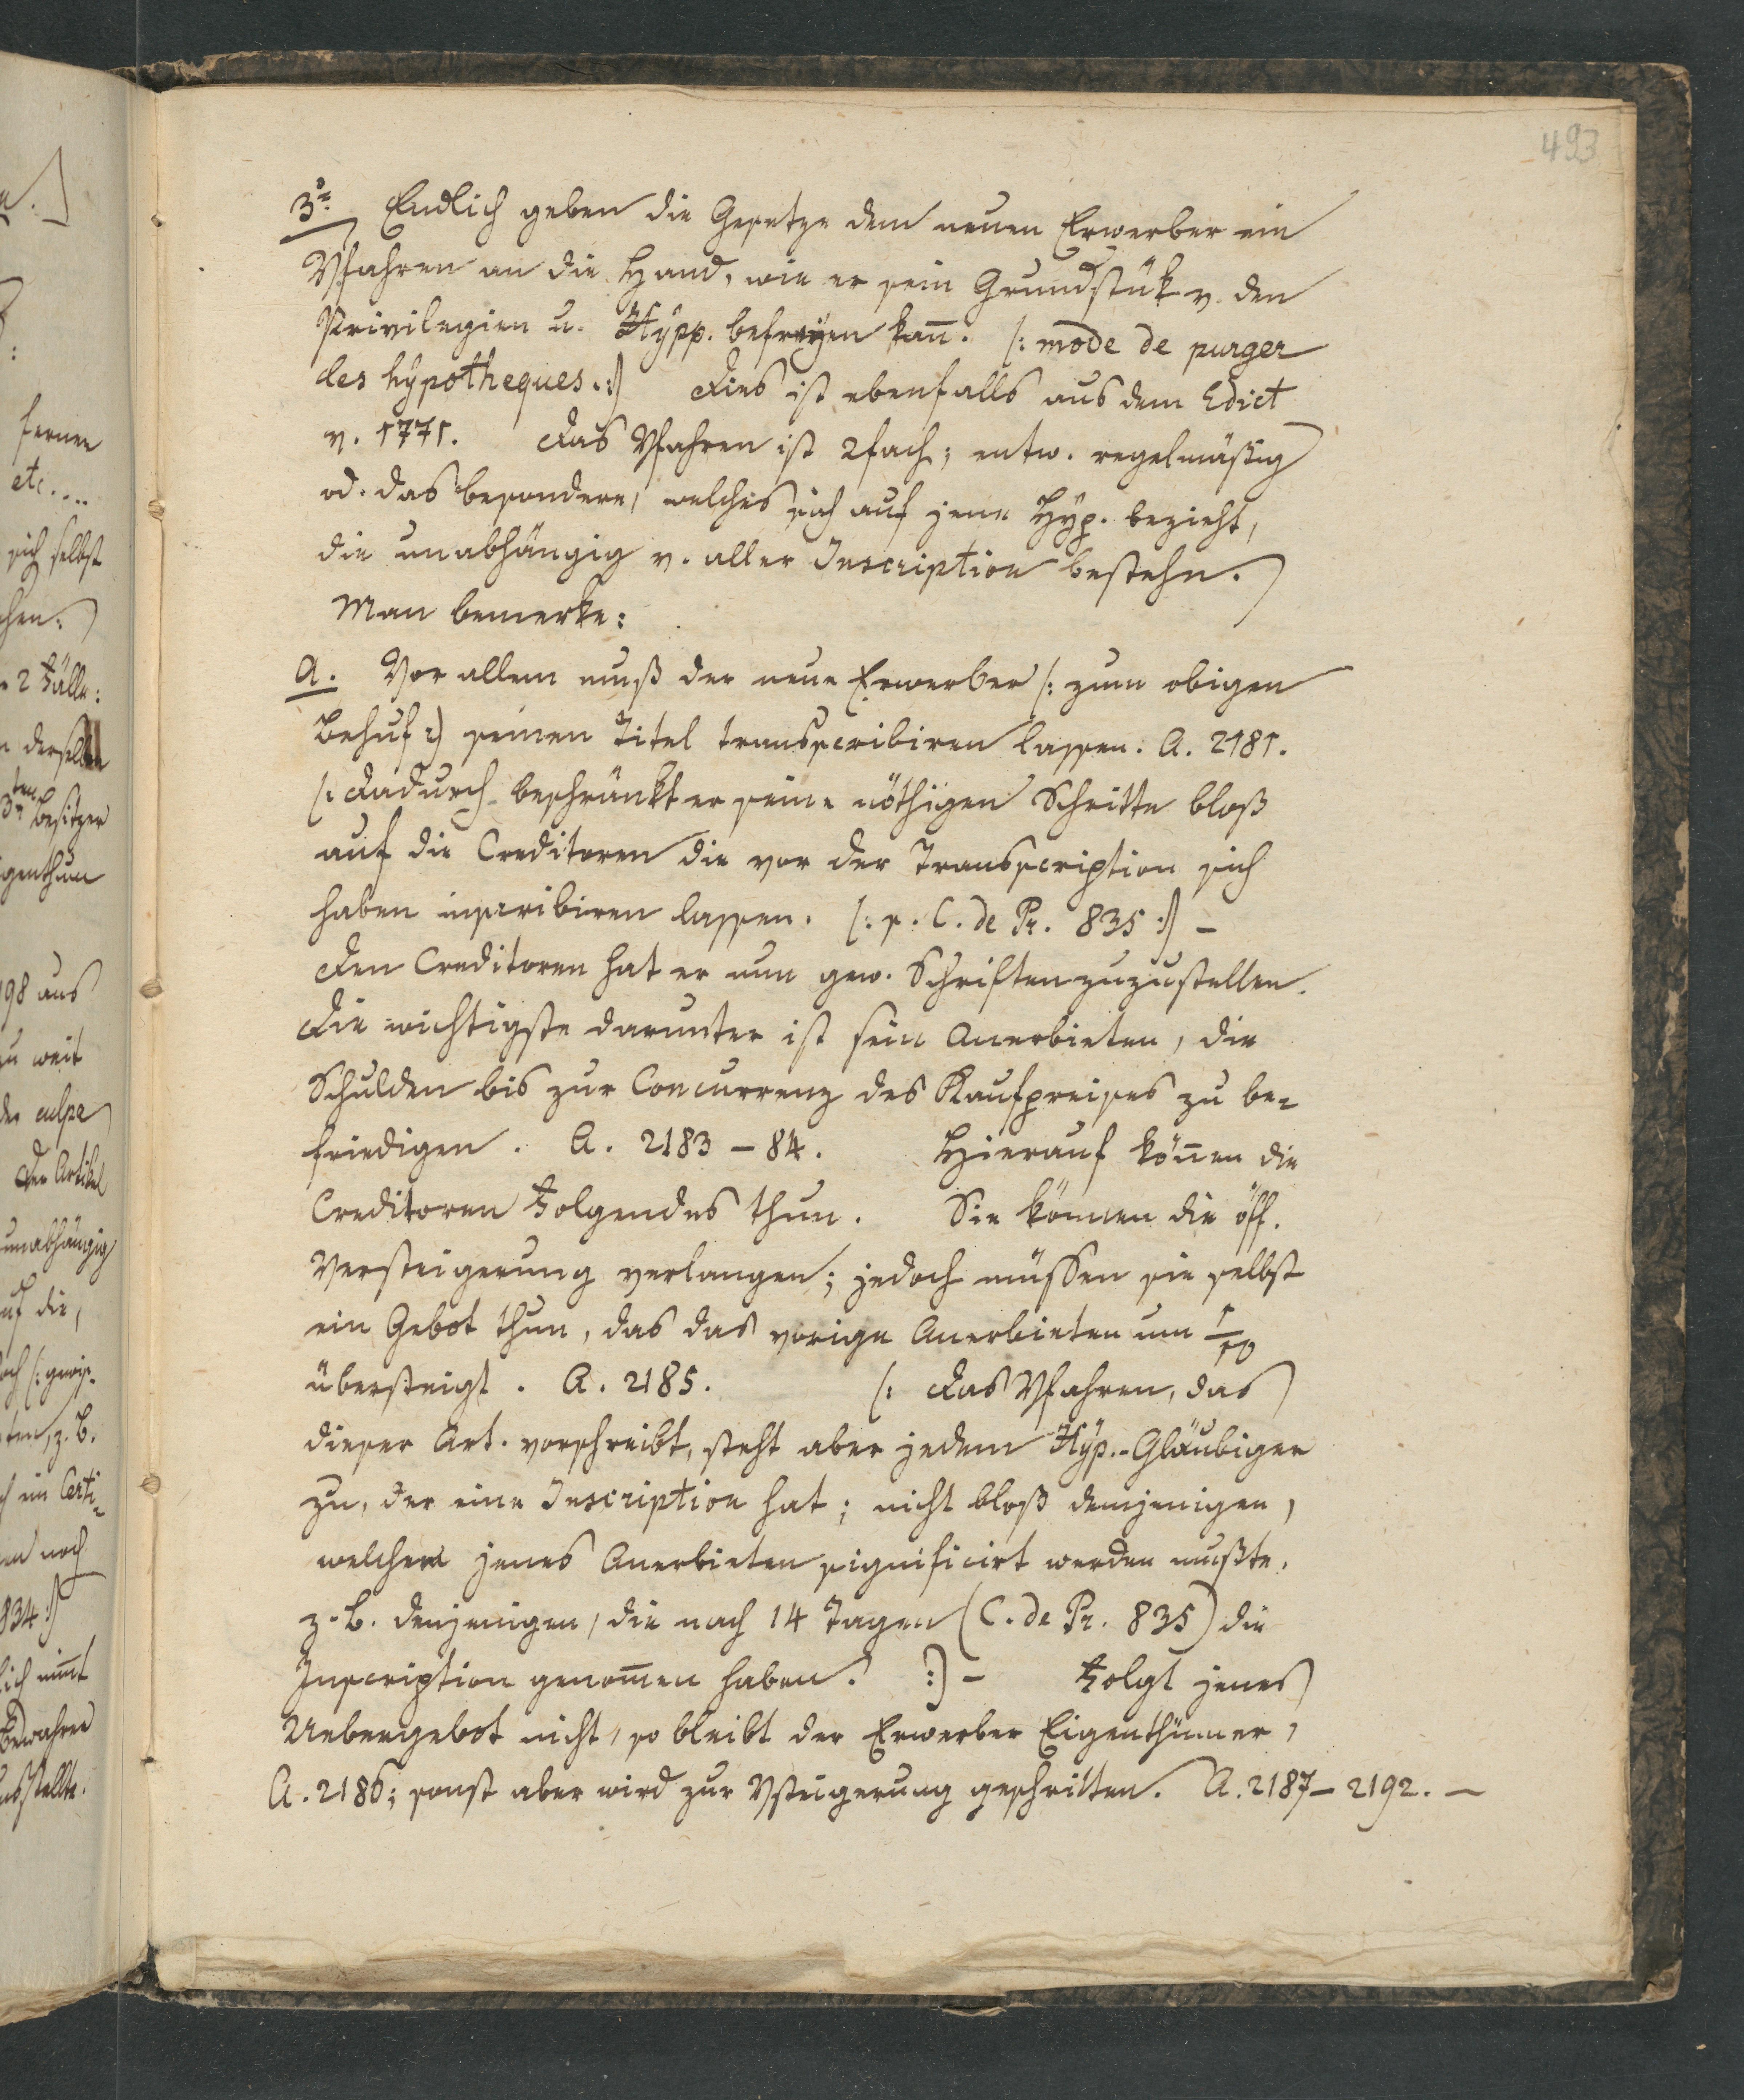 493
3º Endlich geben die Gesetze dem neuen Erwerber ein
Vfahren an die Hand, wie er sein Grundstük v. den
Privilegien u. Hypp. befreyen kan̄. /: mode de purger
les hypotheques. :/ Dies ist ebenfalls aus dem Edict
v. 1771. Das Vfahren ist 2fach; entw. regelmäßig
od. das besondere, welches sich auf jene Hyp. bezieht,
die unabhängig v. aller Inscription bestehn.
Man bemerke:
a. Vor allem muß der neue Erwerber /: zum obigen
Behuf :/ seinen Titel transscribiren lassen. A. 2181.
/: Dadurch beschränkt er seine nöthigen Schritte bloß
auf die Creditoren die vor der Transscription sich
haben inscribiren lassen. /: s. C. de Pr. 835 :/ –
Den Creditoren hat er nun gew. Schriften zuzustellen.
Die wichtigste darunter ist sein Anerbieten, die
Schulden bis zur Concurrenz des Kaufpreises zu be-
friedigen. A. 2183 – 84. Hierauf kön̄en die
Creditoren Folgendes thun. Sie können die öff.
Versteigerung verlangen; jedoch müssen sie selbst
ein Gebot thun, das das vorige Anerbieten um 1/10
übersteigt. A. 2185. /: Das Vfahren, das
dieser Art. vorschreibt, steht aber jedem Hyp.-Gläubiger
zu, der eine Inscription hat; nicht bloß demjenigen,
welchem jenes Anerbieten significirt werden mußte,
z. B. denjenigen, die nach 14 Tagen (C. de Pr. 835) die
Inscription genom̄en haben. :/ – Folgt jenes
Uebergebot nicht, so bleibt der Erwerber Eigenthümer,
A. 2186; sonst aber wird zur Vsteigerung geschritten. A. 2187 – 2192. –